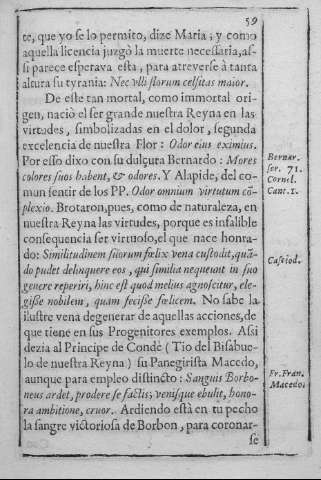 59
te, que yo se lo permito, dize Maria; y como
aquella licencia juzgò la muerte necessaria, as-
si parece esperava esta, para atreverse à tanta
altura su tyrania: Nec vlli florum celsitas maior.
De este tan mortal, como immortal ori-
gen, naciò el ser grande nuestra Reyna en las
virtudes, simbolizadas en el dolor, segunda
excelencia de nuestra Flor: Odor eius eximius.
Por esso dixo con su dulçura Bernardo: Mores
colores suos habent, & odores. Y Alapide, del co-
mun sentir de los PP. Odor omnium virtutum cō-
plexio. Brotaron, pues, como de naturaleza, en
nuestra Reyna las virtudes, porque es infalible
consequencia ser virtuoso, el que nace honra-
do: Similitudinem suorum fœlix vena custodit, quā-
do pudet delinquere eos, qui similia nequeunt in suo
genere reperiri, hinc est quod melius agnoscitur, ele-
gisse nobilem, quam fecisse fœlicem. No sabe la
ilustre vena degenerar de aquellas acciones, de
que tiene en sus Progenitores exemplos. Assi
dezia al Principe de Condè (Tio del Bisabue-
lo de nuestra Reyna) su Panegirista Macedo,
aunque para empleo distincto: Sanguis Borbo-
neus ardet, prodere se factis; venisque ebulit, hono-
ra ambitione, cruor. Ardiendo està en tu pecho
la sangre victoriosa de Borbon, para coronar-
se
Bernar.
ser. 71.
Cornel.
Cant. 1.
Casiod.
Fr. Fran.
Macedo.